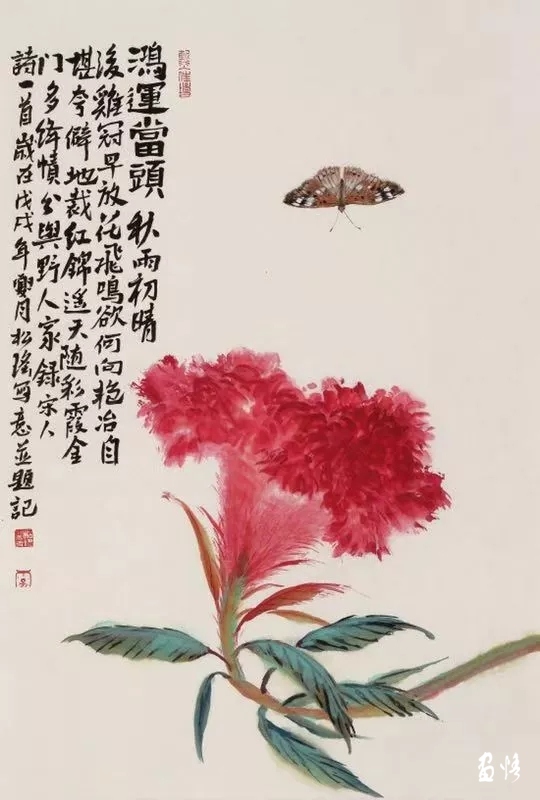 鴻運當頭 秋雨初晴
後雞冠早放花飛鳴欲何向艳冶自
堪夸僻地裁红錦遥天随彩霞金
门多绛幘分與野人家録宋人
詩一首歲在戊戌年月松寫意並題記